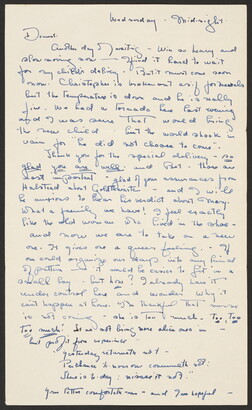 Wednesday - Midnight
Dearest:
Another day of waiting - Am so heavy and
slow moving now - I find it hard to wait
for my child's delivery. But it must come soon
now. Christopher is broken out as if for measles
but the temperature is down and he is really
fine. We had a tornado here last evening
and I was sure that would bring
the new child - but the world shook in
vain for he did not choose to come.
Thank you for the special delivery -
glad you are well and that there is
most important - glad of your assurances from
Halstead about Goldthwaite - and I will
be anxious to hear his verdict about Mary.
What a family we have! I feel exactly
like the old woman who lived in the shoe -
and now we are to take on a new
one. It gives one a queer feeling. If
we could organize our days into any kind
of pattern - it would be easier to fit in a
small boy - but how? I already have it
under control here and wonder why it
can't happen at home. I'm thankful that
is not coming - she is too much. Too Too
Too much! It is not being more alive one is -
but just for
Yesterday returneth not -
Perchance to-morrow cometh not:
There is to-day: misuse it not."
Your letter comforts me - and I'm hopeful -